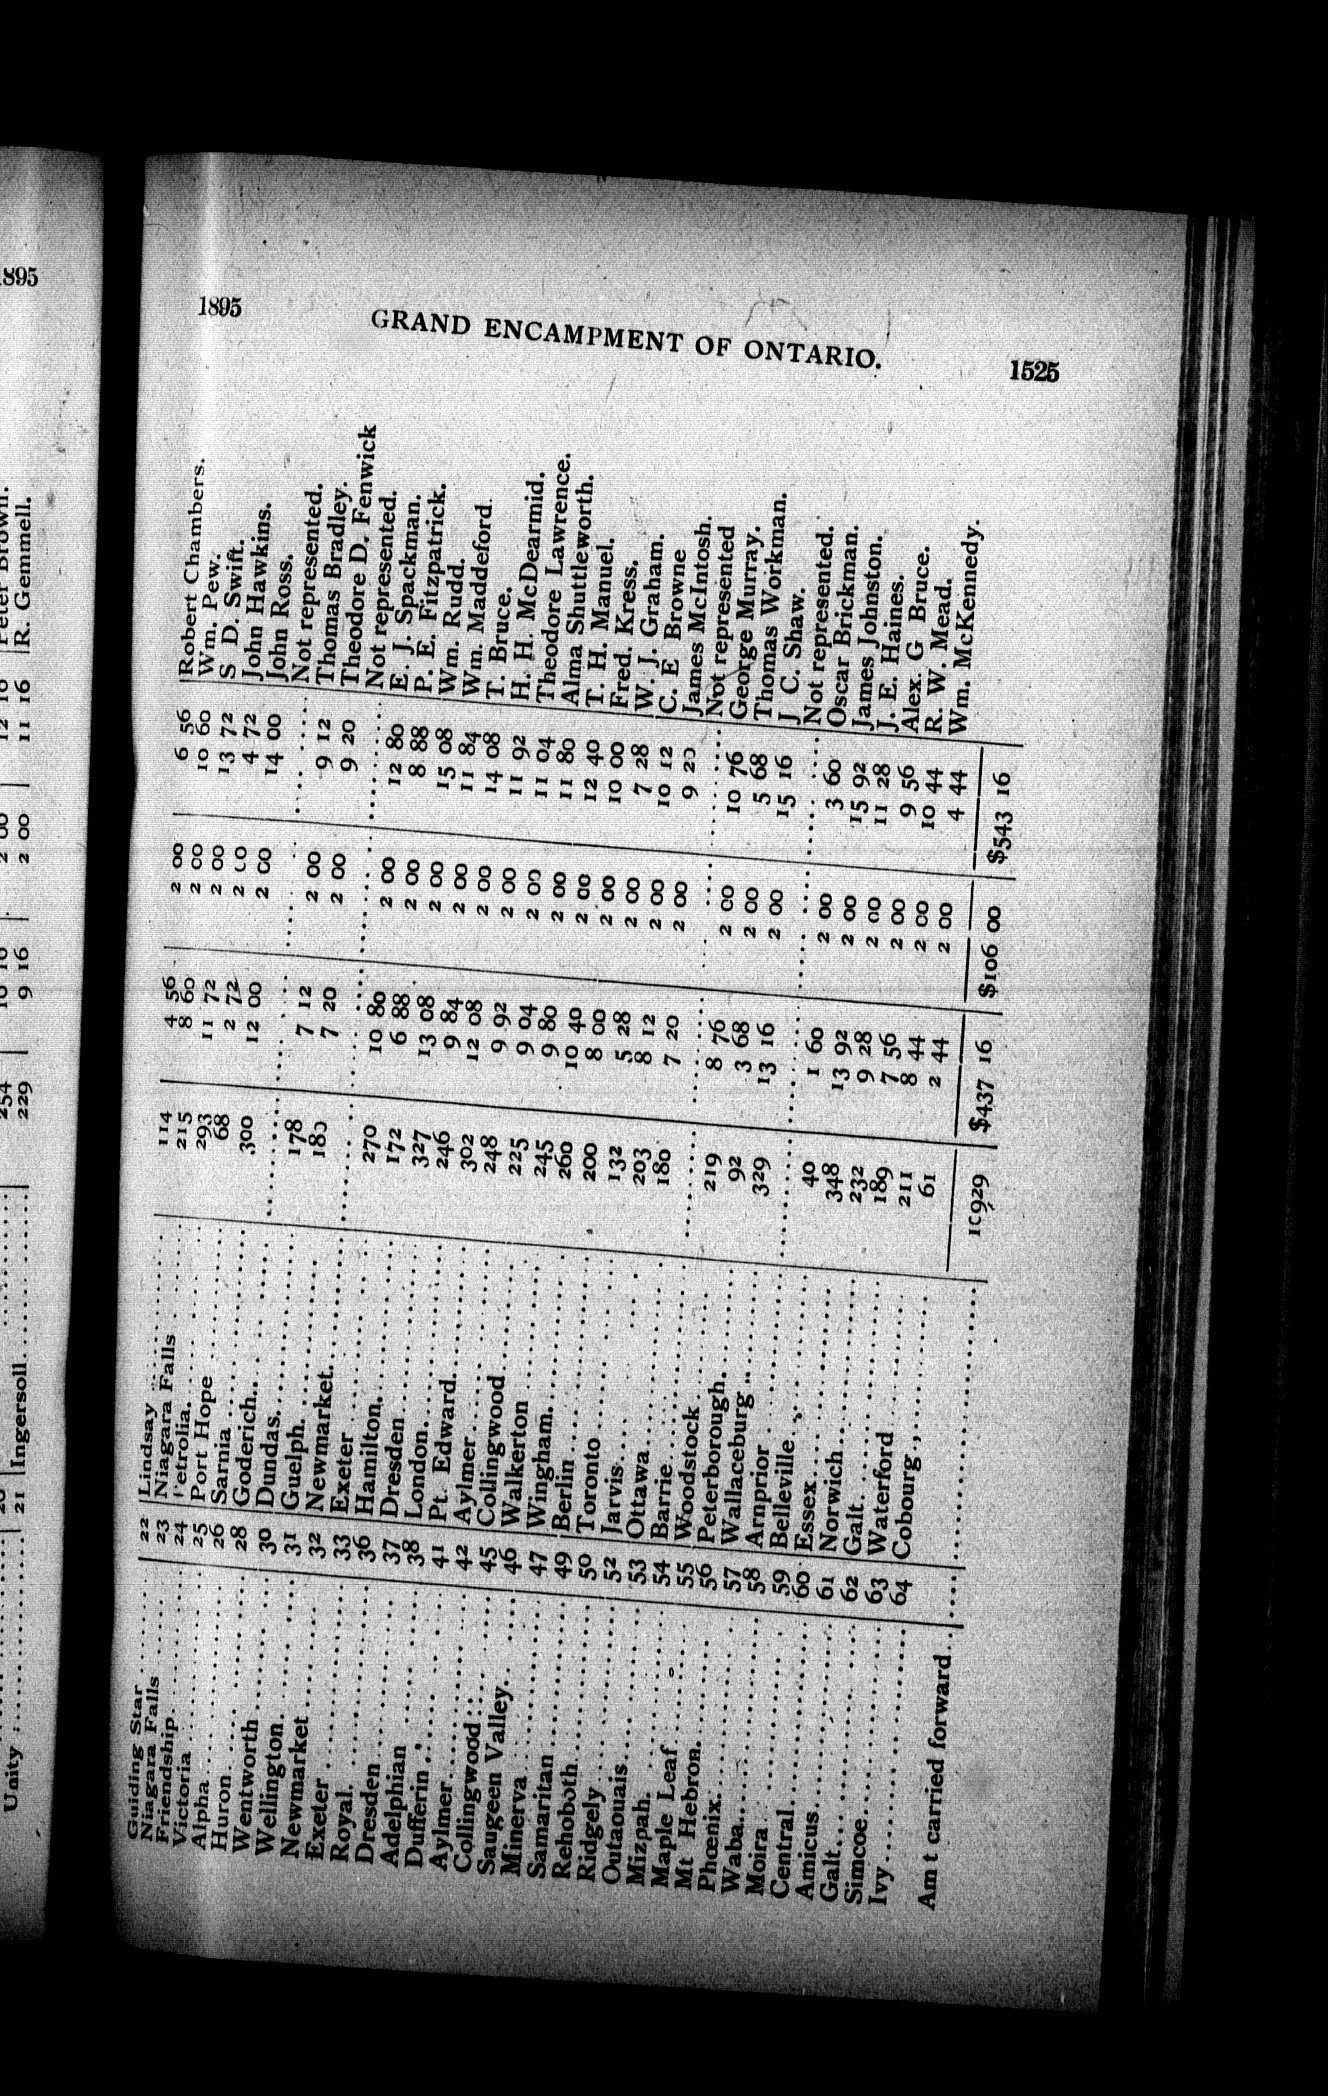 1895
Unity ........ 21 Ingersoll........ 229 9 16 2 00 11 16 R. Gemmell.
1895 GRAND ENCAMPMENT OF ONTARIO. 1525
Guiding Star ........ 22 Lindsay ........ 114 4 56 2 00 6 56 Robert Chambers.
Niagara Falls ........ 23 Niagara Falls ........ 215 8 60 2 00 10 60 Wm. Pew.
Friendship........ 24 Petrolia........ 293 11 72 2 00 13 72 S D. Swift.
Victoria ........ 25 Port Hope ........ 68 2 72 2 00 4 72 John Hawkins.
Alpha........ 26 Sarnia ........ 300 12 00 2 00 14 00 John Ross.
Huron ........ 28 Goderich........ ........ ........ ........ ........ Not represented.
Wentworth ........ 30 Dundas........ 178 7 12 2 00 9 12 Thomas Bradley.
Wellington........ 31 Guelph. ........ 180 7 20 2 00 9 20 Theodore D. Fenwick
Newmarket ........ 32 Newmarket........ ........ ........ ........ ........ Not represented.
Exeter ........ 33 Exeter ........ 270 10 80 2 00 12 80 E. J. Spackman.
Royal........ 36 Hamilton........ 172 6 88 2 00 8 88 P. E. Fitzpatrick.
Dresden ........ 37 Dresden ........ 327 13 08 2 00 15 08 Wm. Rudd.
Adelphian ........ 38 London........ 246 9 84 2 00 11 84 Wm. Maddeford
Dufferin ........ 41 Pt. Edward........ 302 12 08 2 00 14 08 T. Bruce.
Aylmer........ 42 Aylmer........ 248 9 92 2 00 11 92 H. H. McDearmid.
Collingwood ........ 45 Collingwood ........ 225 9 04 2 00 11 04 Theodore Lawrence.
Saugeen Valley........ 46 Walkerton ........ 245 9 80 2 00 11 80 Alma Shuttleworth.
Minerva ........ 47 Wingham........ 260 10 40 2 00 12 40 T. H. Manuel.
Samaritan ........ 49 Berlin ........ 200 8 00 2 00 10 00 Fred. Kress.
Rehoboth ........ 50 Toronto ........ 132 5 28 2 00 7 28 W. J. Graham.
Ridgely ........ 52 Jarvis........ 203 8 12 2 00 10 12 C. E Browne
Outaouais........ 53 Ottawa........ 180 7 20 2 00 9 20 James McIntosh.
Mizpah. ........ 54 Barrie........ ........ ........ ........ ........ Not represented
Maple Leaf ........ 55 Woodstock ........ 219 8 76 2 00 10 76 George Murray.
Mt Hebron........ 56 Peterborough........ 92 3 68 2 00 5 68 Thomas Workman.
Phœnix........ 57 Wallaceburg ........ 329 13 16 2 00 15 16 J C. Shaw.
Waba........ 58 Arnprior ........ ........ ........ ........ ........ Not represented.
Moira ........ 59 Belleville ........ 40 1 60 2 00 3 60 Oscar Brickman.
Central........ 60 Essex........ 348 13 92 2 00 15 92 James Johnston.
Amicus........ 61 Norwich........ 232 9 28 2 00 11 28 J. E. Haines.
Galt........ 62 Galt........ 189 7 56 2 00 9 56 Alex. G Bruce.
Simcoe........ 63 Waterford ........ 211 8 44 2 00 10 44 R. W. Mead.
Ivy........ 64 Cobourg ........ 61 2 44 2 00 4 44 Wm. McKennedy.
Am t carried forward ........ 10929 $437 16 $106 00 $543 16